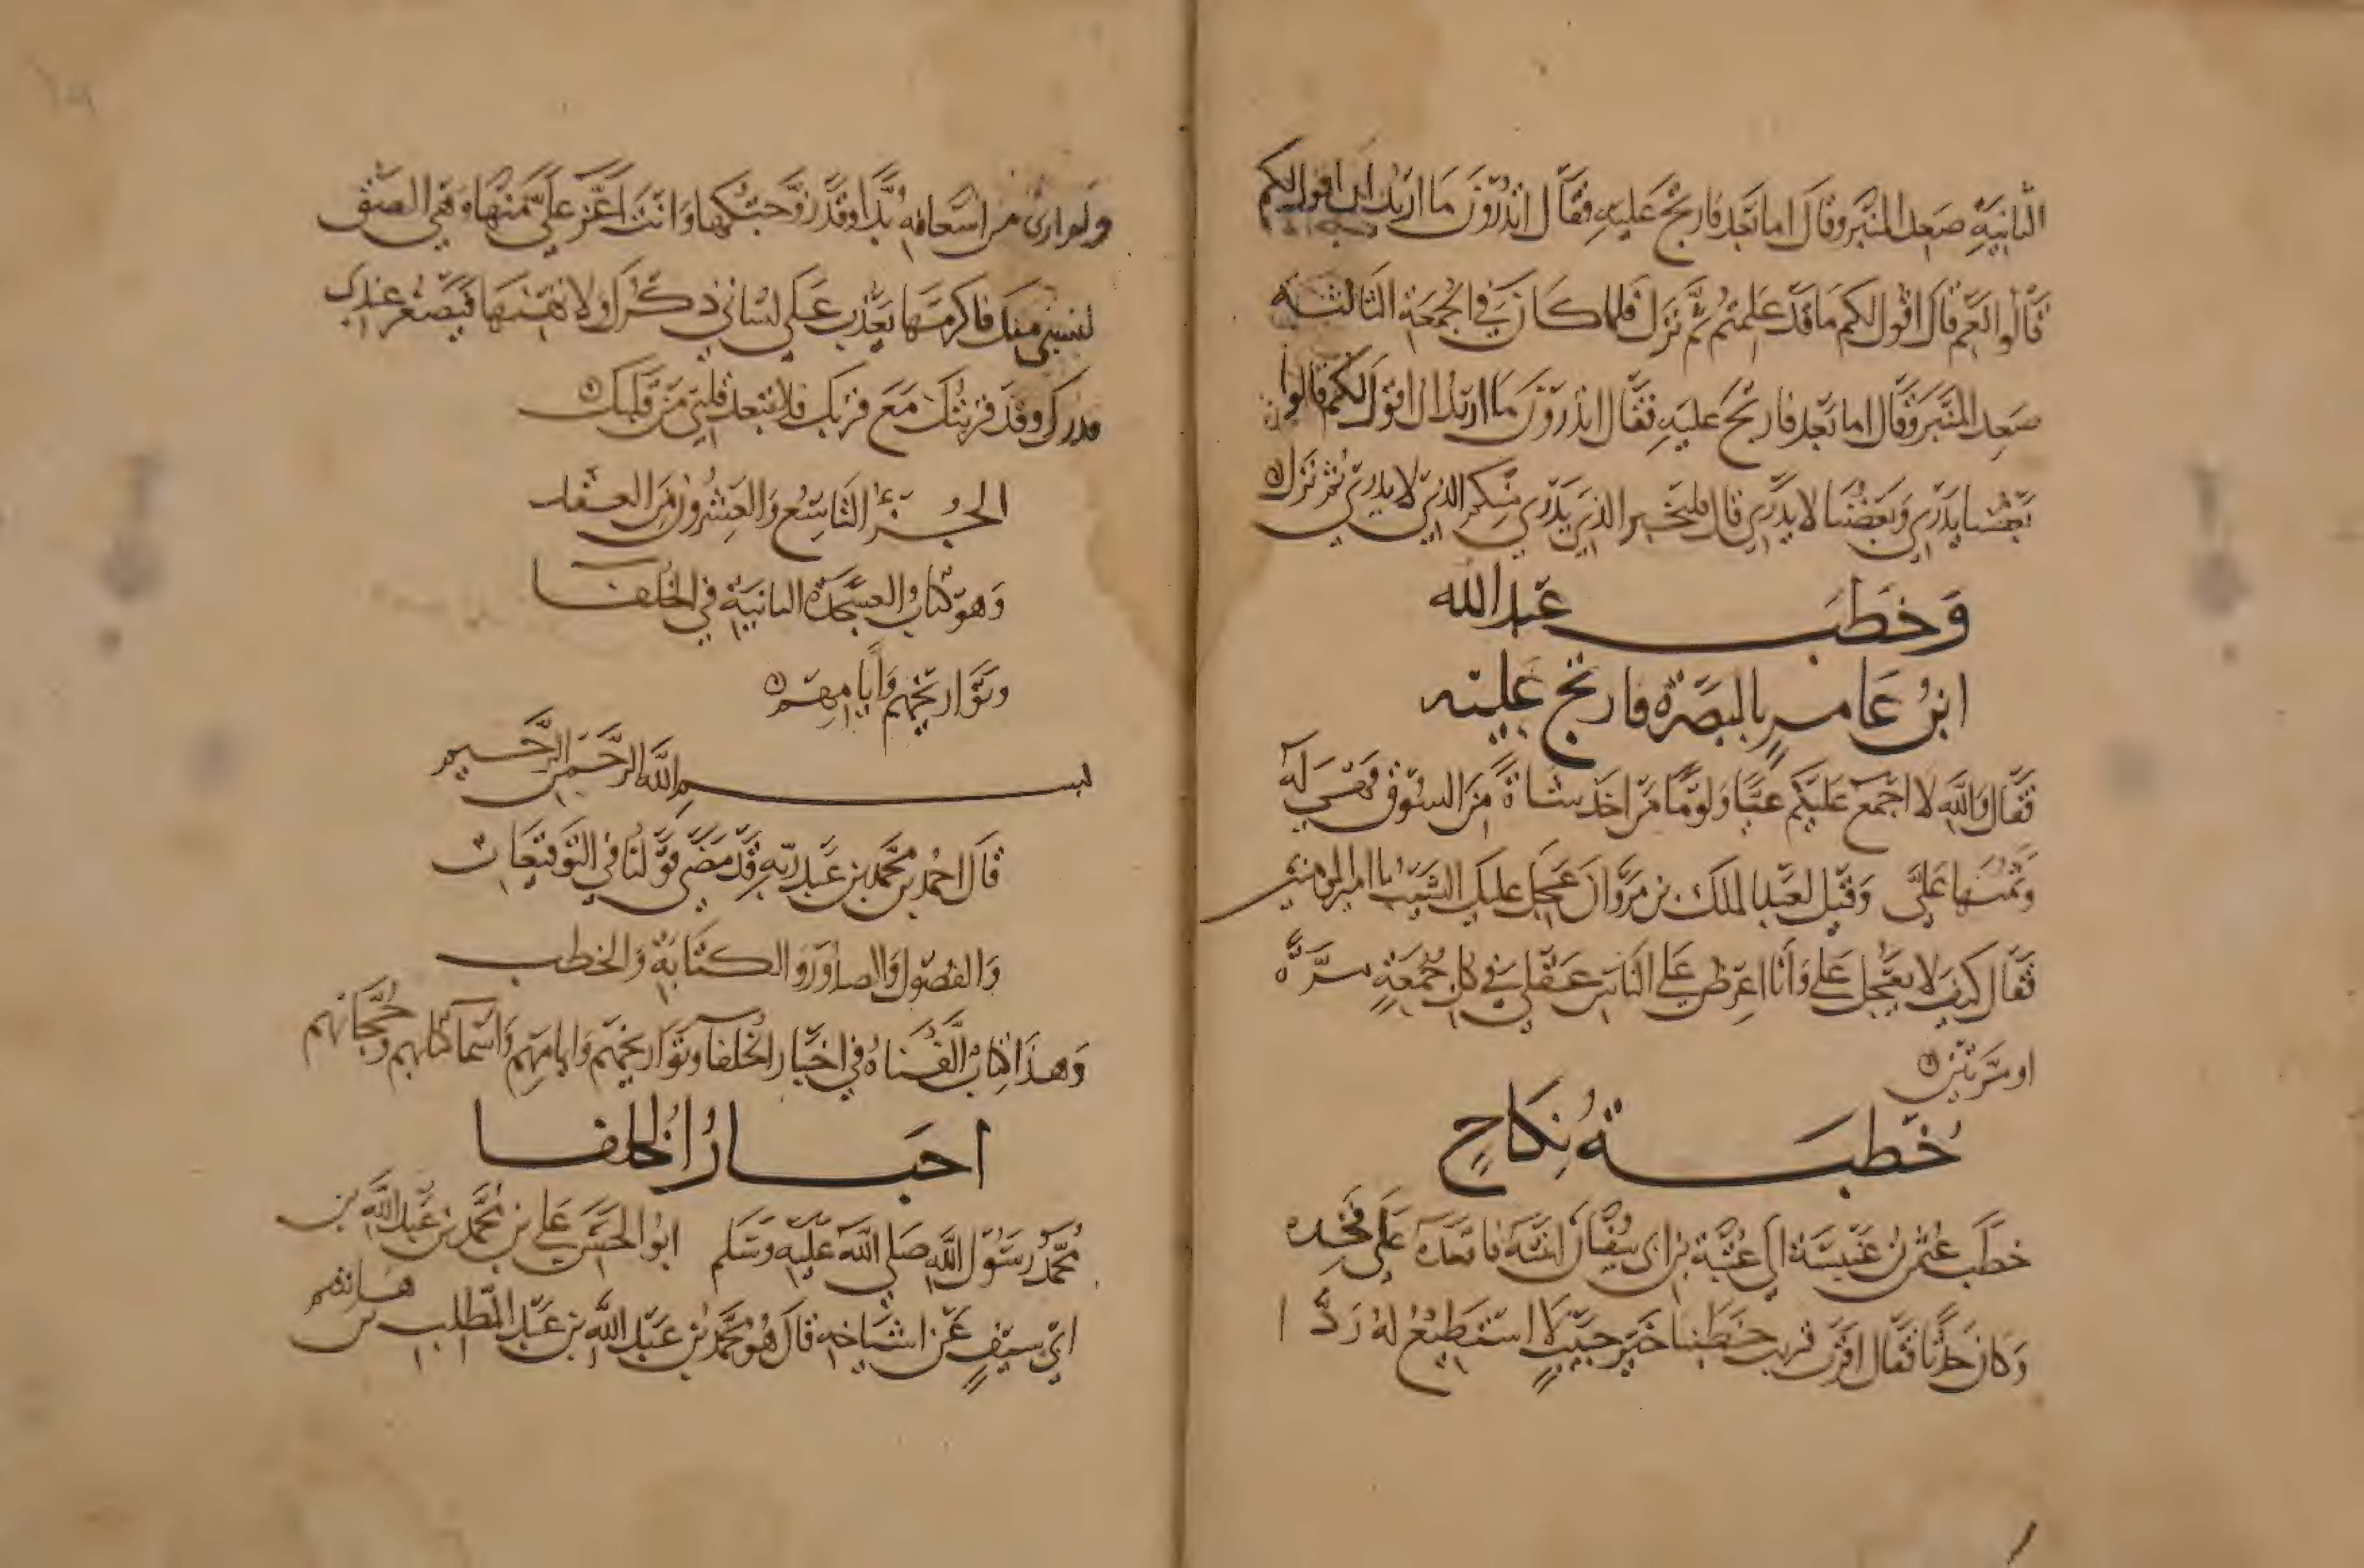 الثانية صعد المنبر وقال اما بعد فارتج عليه فقال اتدرون ما اريد ان اقول لكم
قالوا نعم قال اقول لكم ما قد علمتم ثم نزل فلما كان في الجمعة الثالثة
صعد المنبر وقال اما بعد فارتج عليه فقال اتدرون ما اريد ان اقول لكم قالوا
بعضنا يدري وبعضنا لا يدري قال فليخبر الذي يدري منكم الذي لا يدري ثم نزل
وخطب عبد الله
ابن عامر بالبصرة فارتج عليه
فقال والله لا اجمع عليكم عيا ولوما من اخذ شاة من السوق فهي له
وثمنها علي وقيل لعبد الملك بن مروان عجل عليك الشيب يا امير المومنين
فقال كيف لا يعجل علي وانا اعرض على الناس عقلي في كل جمعة مرة
او مرتين
خطبة نكاح
خطب عثمن بن عنبسة الى عتبة بن ابي سفيان ابنته فاقعده على فخذه
وكان حدثا فقال اقرب قريب خطب احب حبيب لا استطيع له ردا
ولا ارى من اسعافه بدا وقد زوجتكها وانت اعز علي منها وهي الصق
بنفسي منك فاكرمها يعذب على لساني ذكرك ولا تهنها فيصغر عندي
قدرك وقد قربتك مع قربك فلا تبعد قلبي من قلبك
الجزء التاسع والعشرون من العقد
وهو كتاب العسجدة الثانية في الخلفا
وتواريخهم وايامهم
بسم الله الرحمن الرحيم
قال احمد بن محمد بن عبد ربه قد مضى قولنا في التوقيعات
والفصول والصدور والكتابة والخطب
وهذا كتاب الفناه في اخبار الخلفا وتواريخهم وايامهم واسما كتابهم وحجابهم
اخبار الخلفا
محمد رسول الله صلى الله عليه وسلم ابو الحسن علي بن محمد بن عبد الله بن
ابي سيف عن اشياخه قال هو محمد بن عبد الله بن عبد المطلب بن هاشم